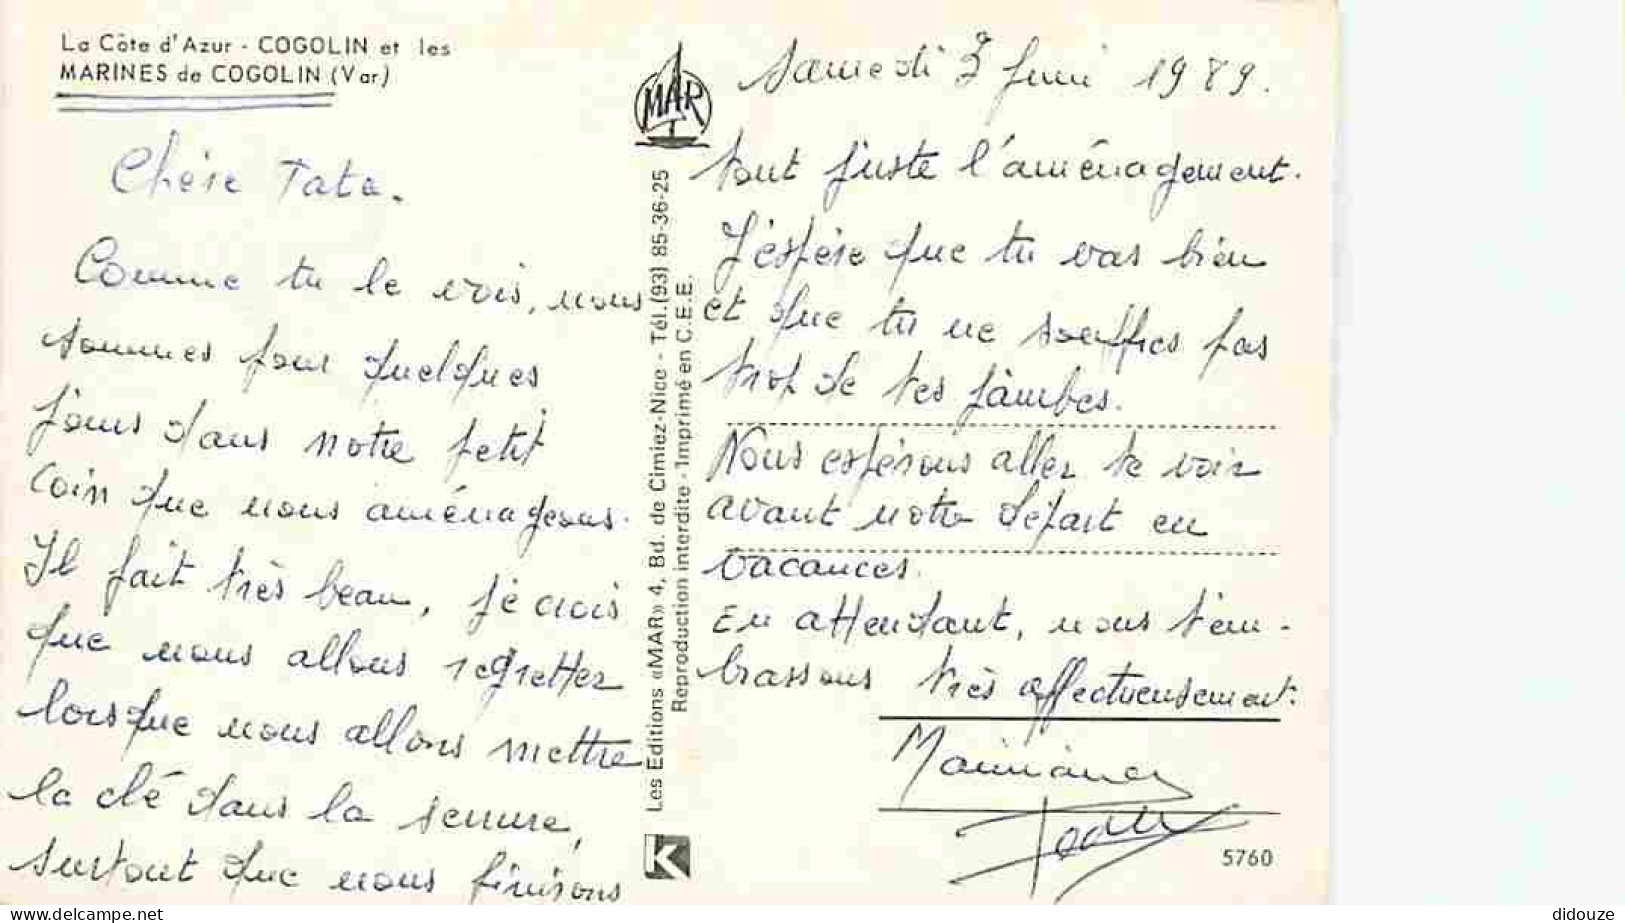 La Côte d'Azur - COGOLIN et les
MARINES de COGOLIN (Var)
Chère Tata.
Comme tu le vois, nous
sommes pour quelques
jours dans notre petit
coin que nous aménageons.
Il fait très beau, je crois
que nous allons regretter
lorsque nous allons mettre
la clé dans la serrure,
surtout que nous finissons
MAR
Les Editions «MAR» 4, Bd. de Cimiez-Nice - Tél. (93) 85-36-25
Reproduction interdite - Imprimé en C.E.E.
K
Samedi 3 Juin 1989.
tout juste l'aménagement.
J'espère que tu vas bien
et que tu ne souffres pas
trop de tes jambes.
Nous espérons aller te voir
avant notre départ en
vacances.
En attendant, nous t'em-
brassons très affectueusement.
5760
didouze